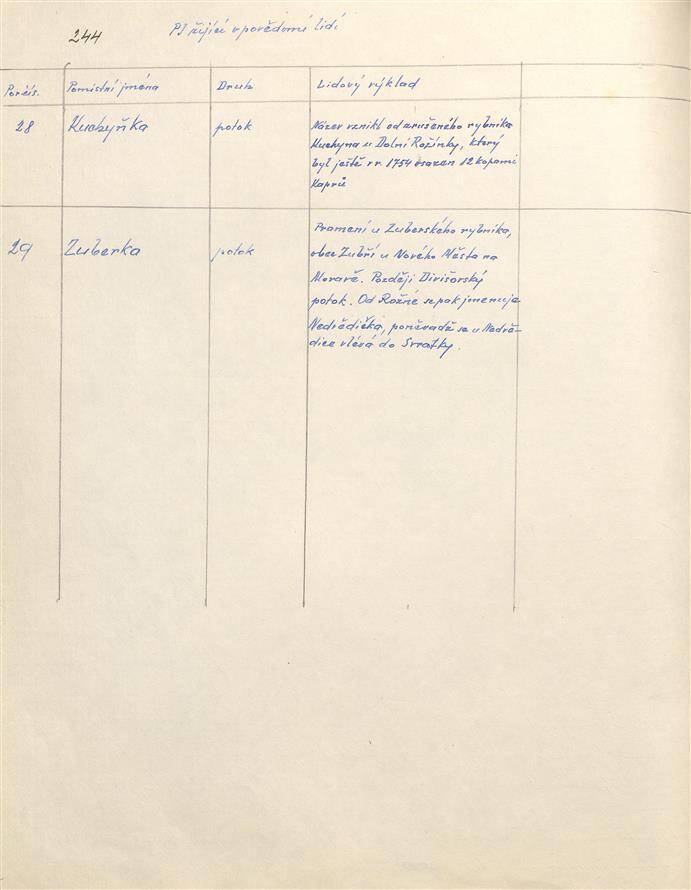 244
PJ žijící v povědomí lidí
Poř.čís.
Pomístní jména
Druh
Lidový výklad
28
Kuchyňka
potok
Název vznikl od zrušeného rybníka
Kuchyna u Dolní Rožínky, který
byl ještě r. 1754 osazen 12 kopami
kaprů
29
Zuberka
potok
Pramení u Zuberského rybníka,
obec Zubří u Nového Města na
Moravě. Později Divišovský
potok. Od Rožné se pak jmenuje
Nedvědička, poněvadž se u Nedvě-
dice vlévá do Svratky.